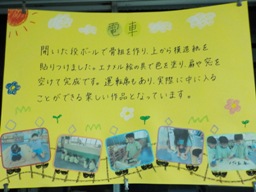 電車
開いた段ボールで骨組を作り、上から模造紙を
貼りつけました。エナメル絵の具で色を塗り、扉や窓を
空けて完成です。運転席もあり、実際に中に入る
ことができる楽しい作品となっています。